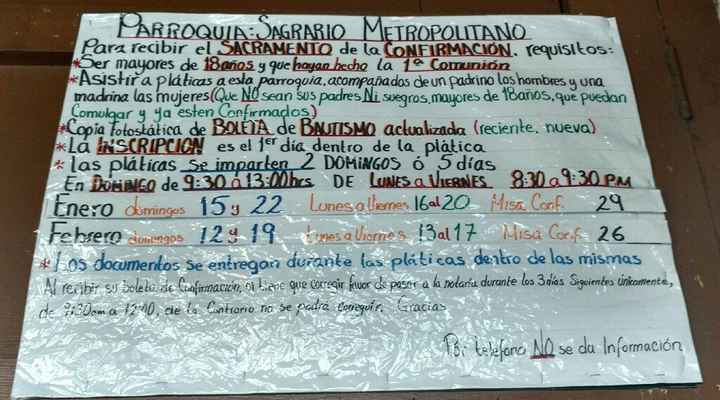 PARROQUIA: SAGRARIO METROPOLITANO
Para recibir el SACRAMENTO de la CONFIRMACIÓN, requisitos:
*Ser mayores de 18 años y que hayan hecho la 1ª Comunión
*Asistir a pláticas a esta parroquia, acompañados de un padrino los hombres y una
madrina las mujeres (Que NO sean sus padres Ni suegros, mayores de 18 años, que puedan
Comulgar y ya esten Confirmados)
*Copia fotostática de BOLETA de BAUTISMO actualizada (reciente, nueva)
*La INSCRIPCIÓN es el 1er día, dentro de la plática
*las pláticas se imparten 2 DOMINGOS ó 5 días
En: DOMINGO de 9:30 a 13:00 hrs DE LUNES a VIERNES 8:30 a 9:30 PM
Enero domingos 15 y 22 Lunes a Viernes 16 al 20 Misa Conf. 29
Febrero domingos 12 y 19 Lunes a Viernes 13 al 17 Misa Conf. 26
*Los documentos se entregan durante las pláticas dentro de las mismas
Al recibir su boleta de Confirmación, si tiene que corregir favor de pasar a la notaría durante los 3 días siguientes únicamente,
de 9:30am a 12:00, de lo Contrario no se podrá corregir. Gracias
Por teléfono NO se da Información